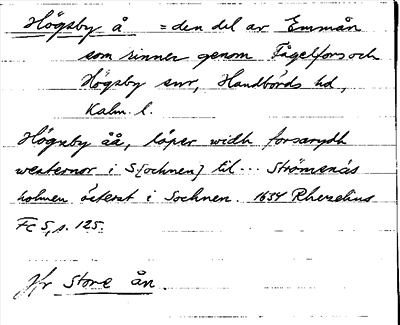 Högsby å = den del av Emmån
som rinner genom Fågelfors och
Högsby snr, Handbörds hd,
Kalm. l.
Högsby åå, löper widh forsarydh
westernor i S[ochnen] til... Strömenäs
holmen österst i Sochnen. 1634 Rhezelius
Fc 5, s. 125.
Jfr Store ån.